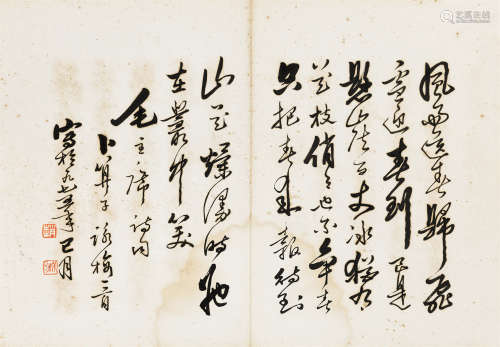 風雨送春歸飛
雪迎春到已是
懸崖百丈冰猶有
花枝俏々也不爭春
只把春來報待到
山花爛漫時她
在叢中笑
毛主席詩詞
卜算子詠梅一首
寫於一九七五年月